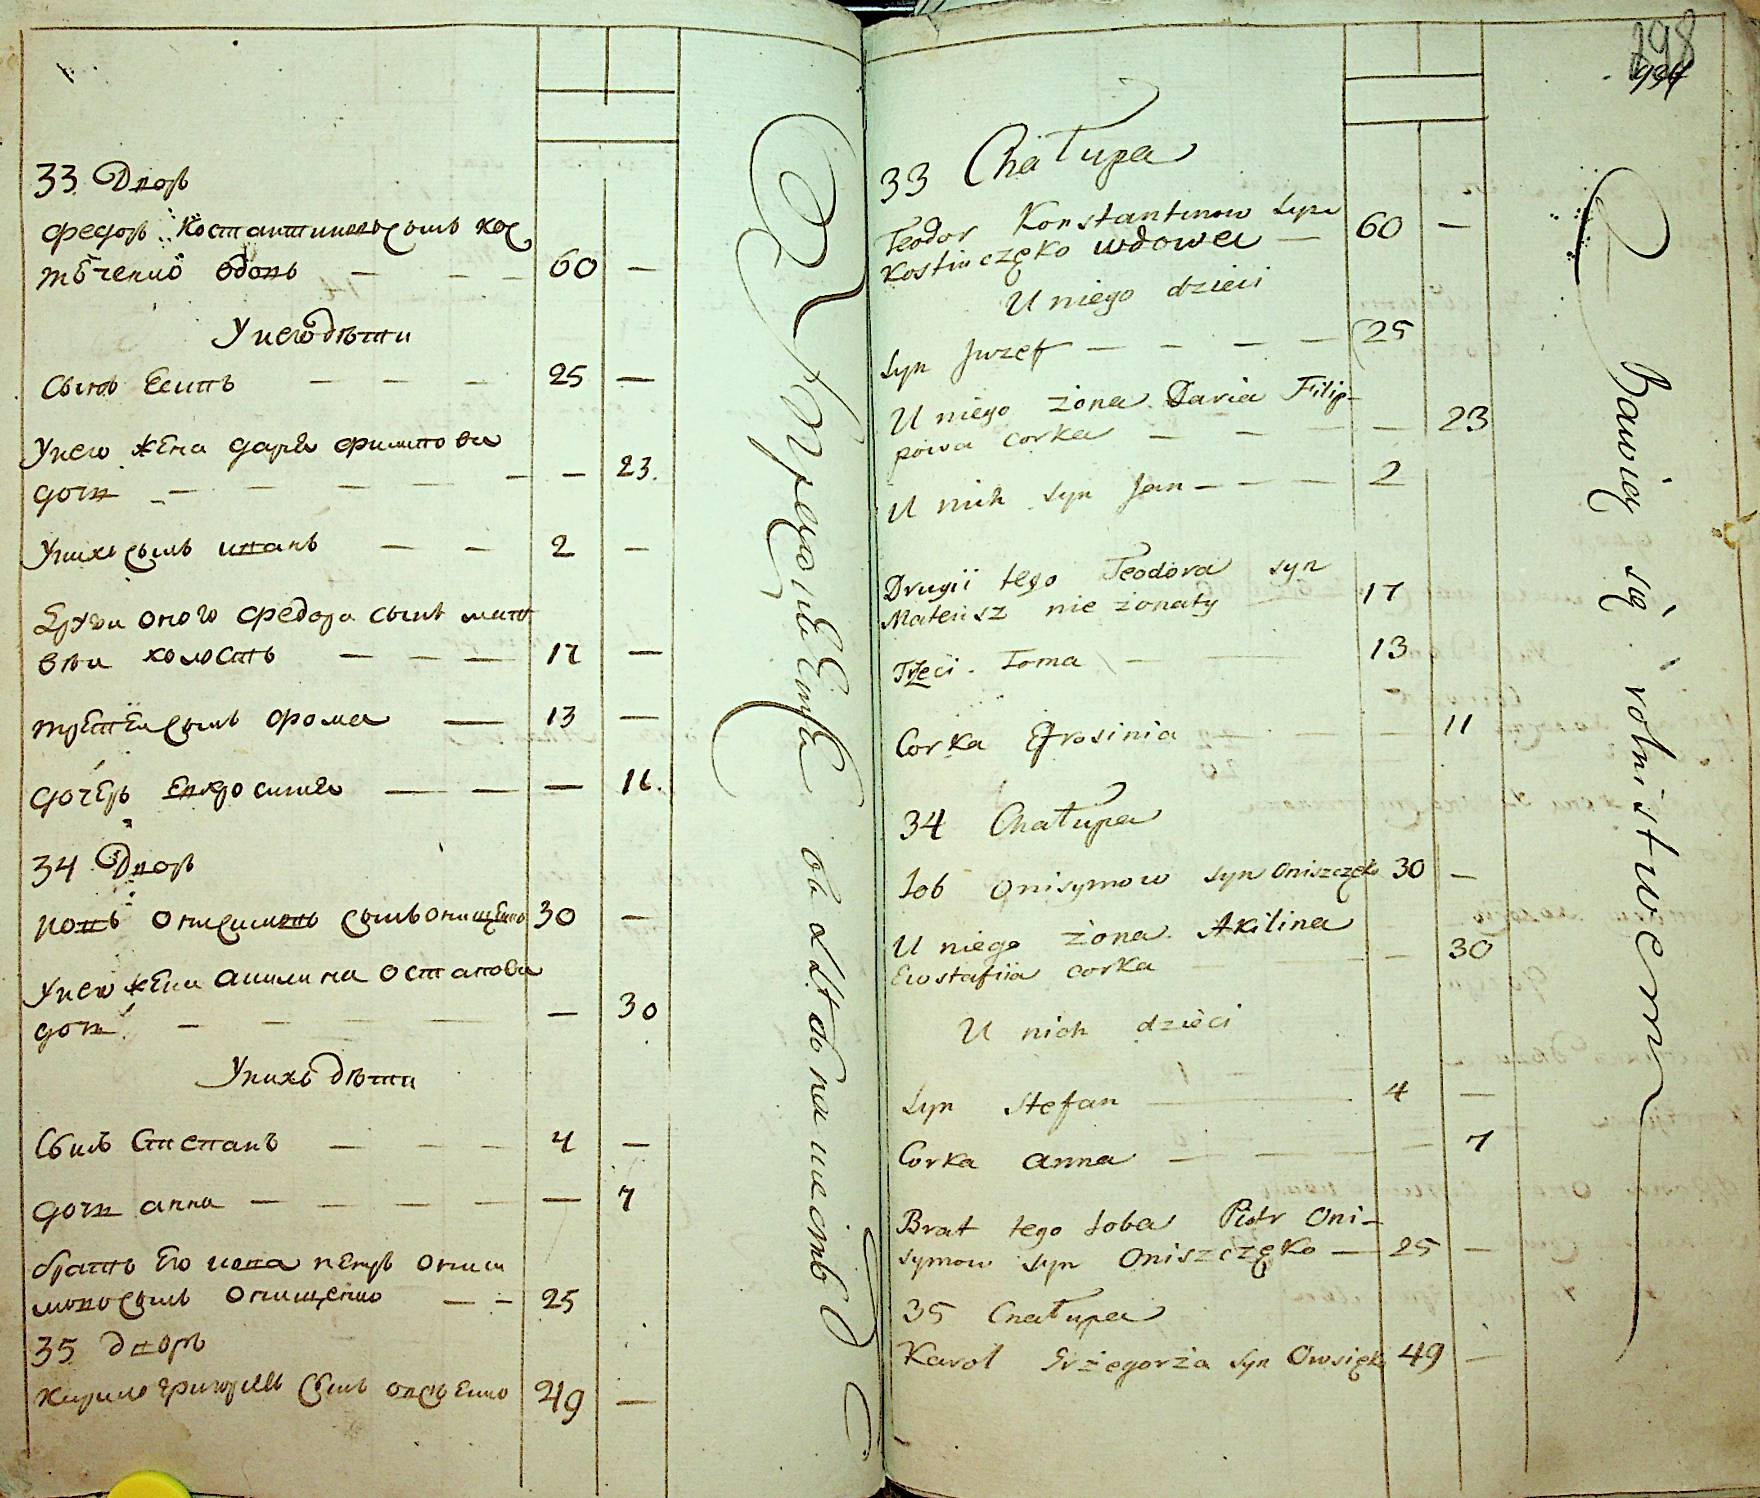 33 Дворъ
Федоръ Костантиновъ сынъ Кос
тѣченко вдовъ — — — 60 —
У него дѣти
Сынъ Есипъ — — — 25 —
У него жена Даря Филипова
дочь — — — — — — 23.
У нихъ сынъ Иванъ — — 2 —
Други оного Федора сынъ Матъ
вѣи холостъ — — — 17 —
третеи сынъ Фома — 13 —
дочерь Евфросиния — — — 11.
34 Дворъ
Иовъ Онисимовъ сынъ Онищенко 30 —
У него жена Акилина Остапова
дочь — — — — — 30
У нихъ дѣти
Сынъ Степанъ — — — 4 —
дочь Анна — — — — — 7
братъ его Иова Петръ Ониси
мовъ сынъ Онищенко — — 25
35 дворъ
Кирило Григорьевъ сынъ Овсѣенко 49 —
798
33 Chałupa
Teodor Konstantinow Syn
Kostiuczęko wdowei — 60 —
U niego dzieci
Syn Juzef — — — — 25
U niego żona Daria Filip-
powa corka — — — — 23
U nich syn Jan — — — 2
Drugii tego Teodora syn
Mateusz nie żonaty 17
Trzeci Toma — 13
Corka Efrosinia — — — 11
34 Chałupa
Iob Onisymow syn Oniszczęko 30 —
U niego żona Akilina
Ewstafiia corka — — 30
U nich dzieci
Syn Stefan — 4 —
Corka Anna — — — 7
Brat tego Ioba Piotr Oni-
symow syn Oniszczęko — 25 —
35 Chałupa
Karol Grzegorża syn Owsięk 49 —
Bawiący się rolnistwem